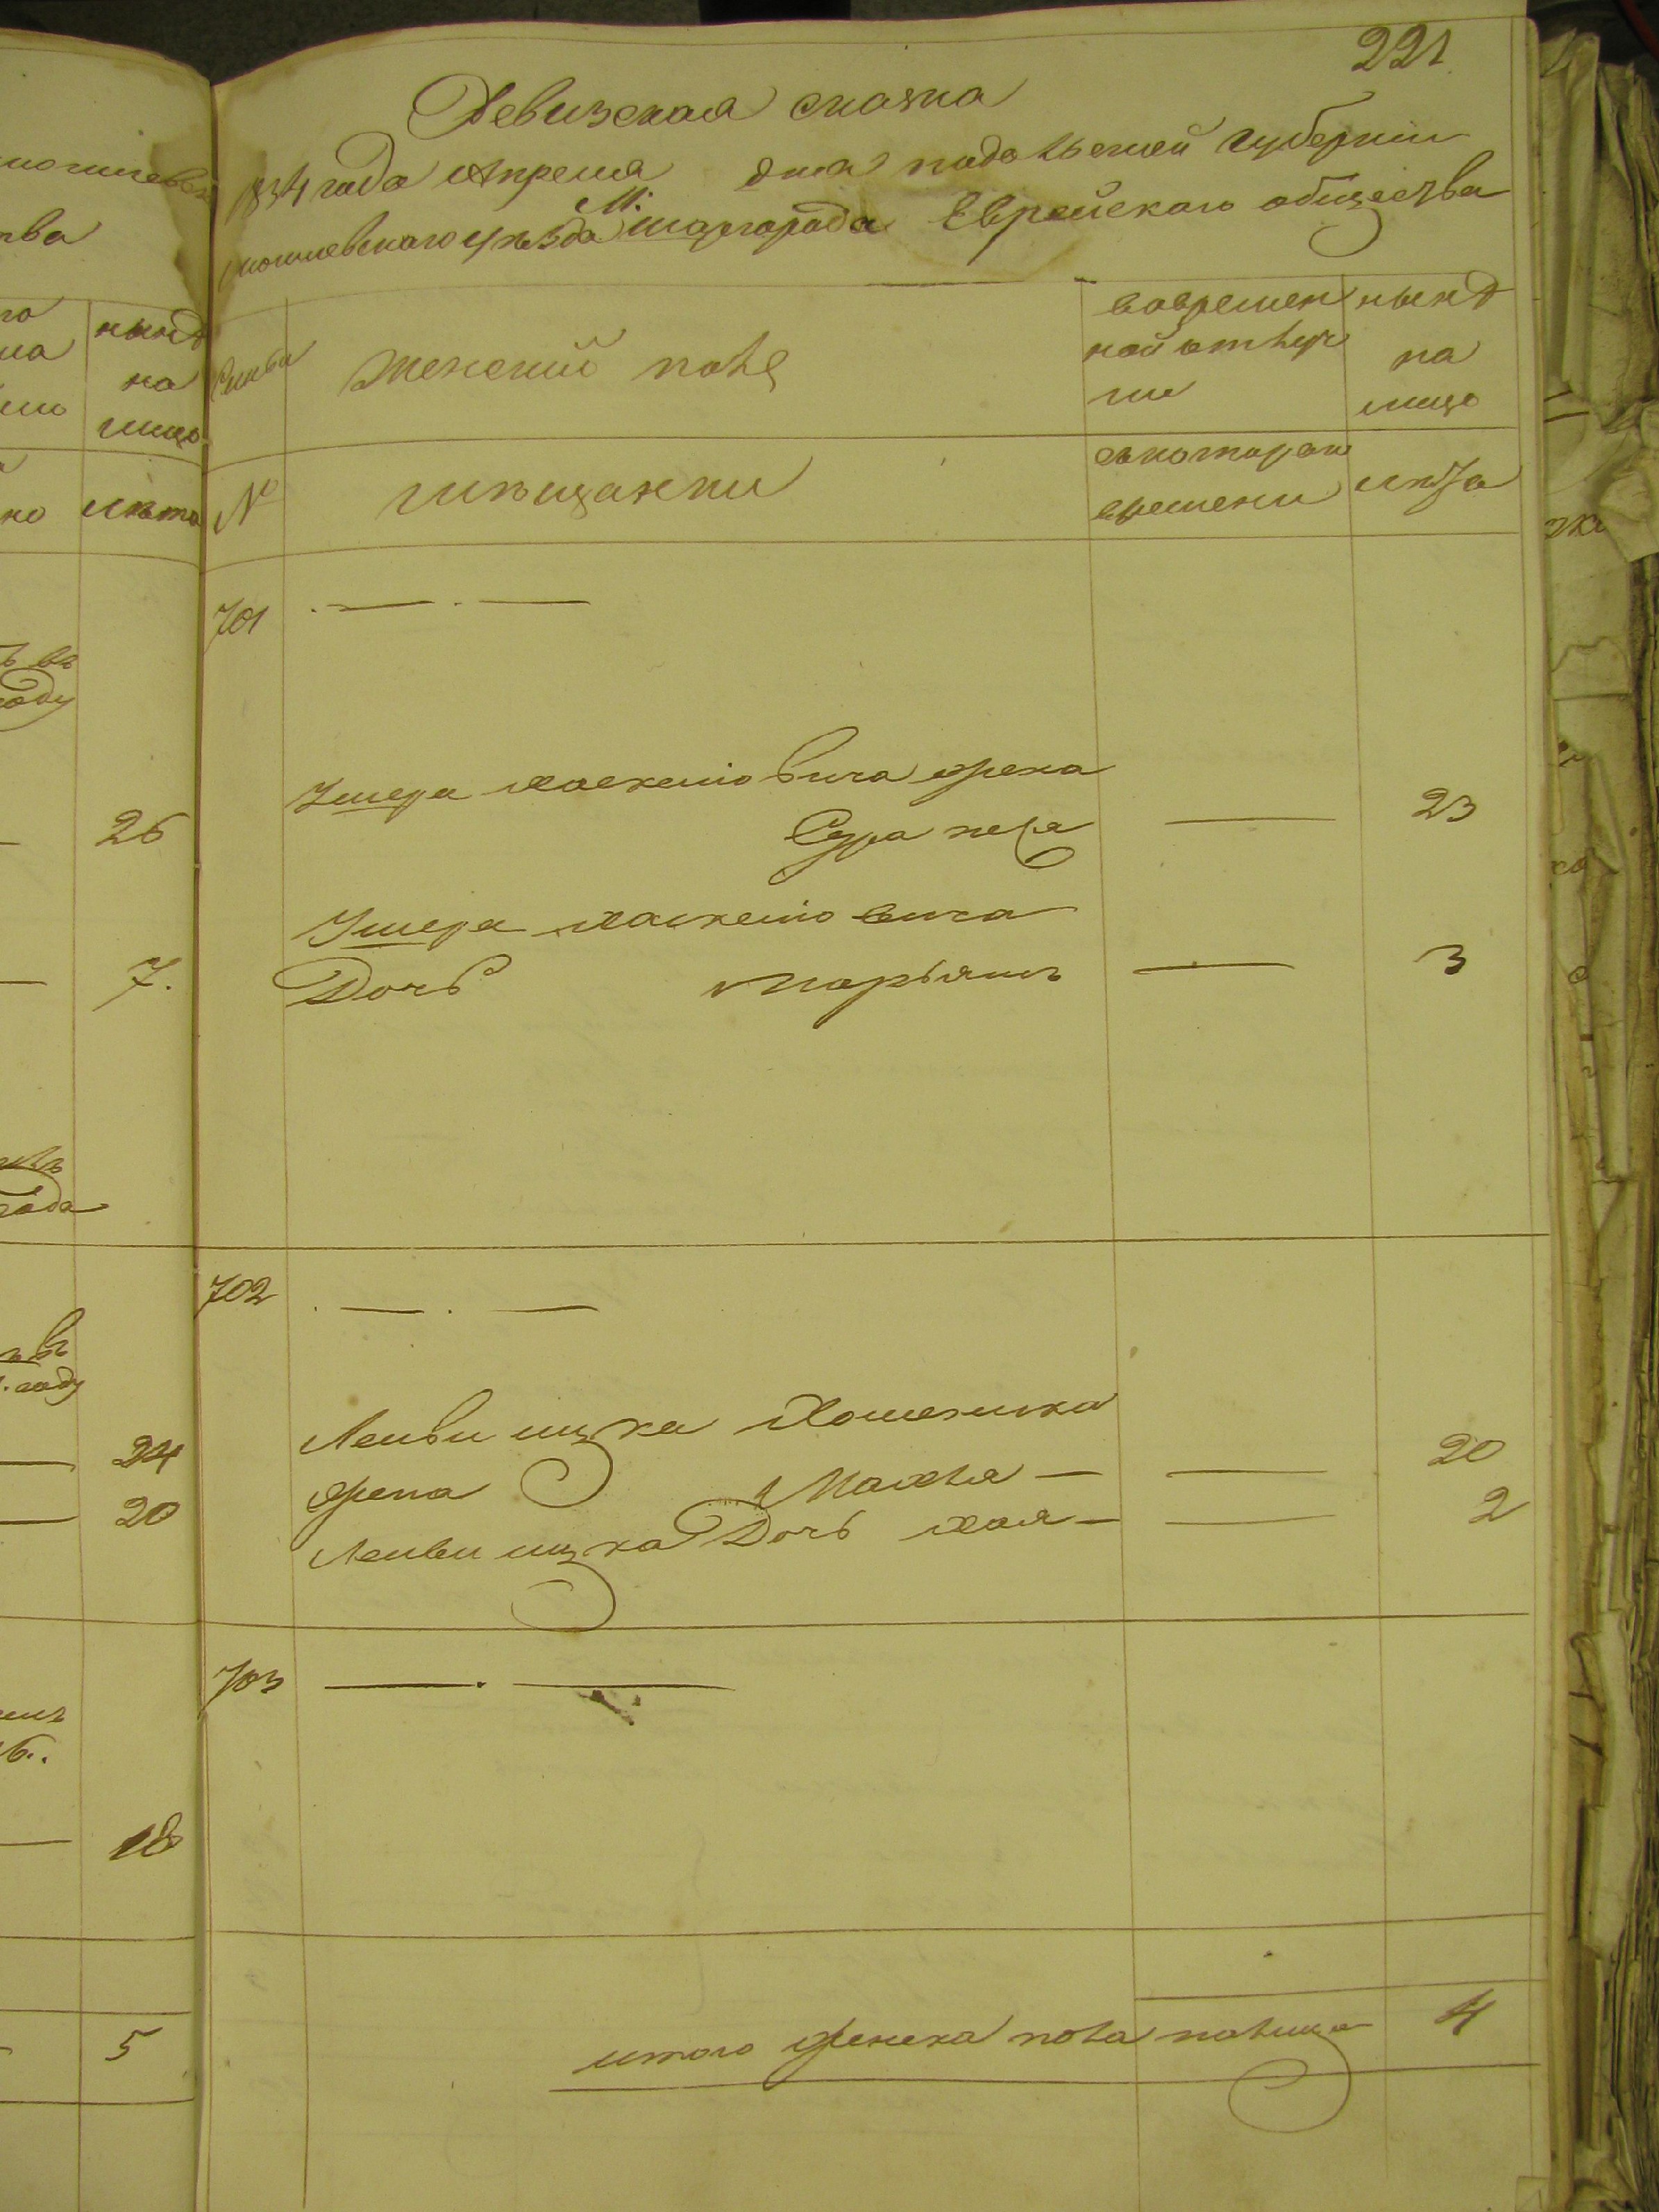 221
Ревизская сказка
1834 года Апреля дня подольской губернии
могилевского уезда М: шаргорода Еврейского общества
семьи
женский полъ
вовремен
ной отлуч
ки
ныне
на
лицо
№
мещанки
скоторого
времени
лета
701
Умера Хаскелiовича жена
Сура песя
23
Умера Хаскелiовича
Дочь марьямъ
3
702
Лейви ицка
жена Махля
20
Лейви ицка Дочь хая
2
703
итого женска пола налицо
4
ныне
на
лицо
лета
году
26
7.
года
году
24
20
18
5